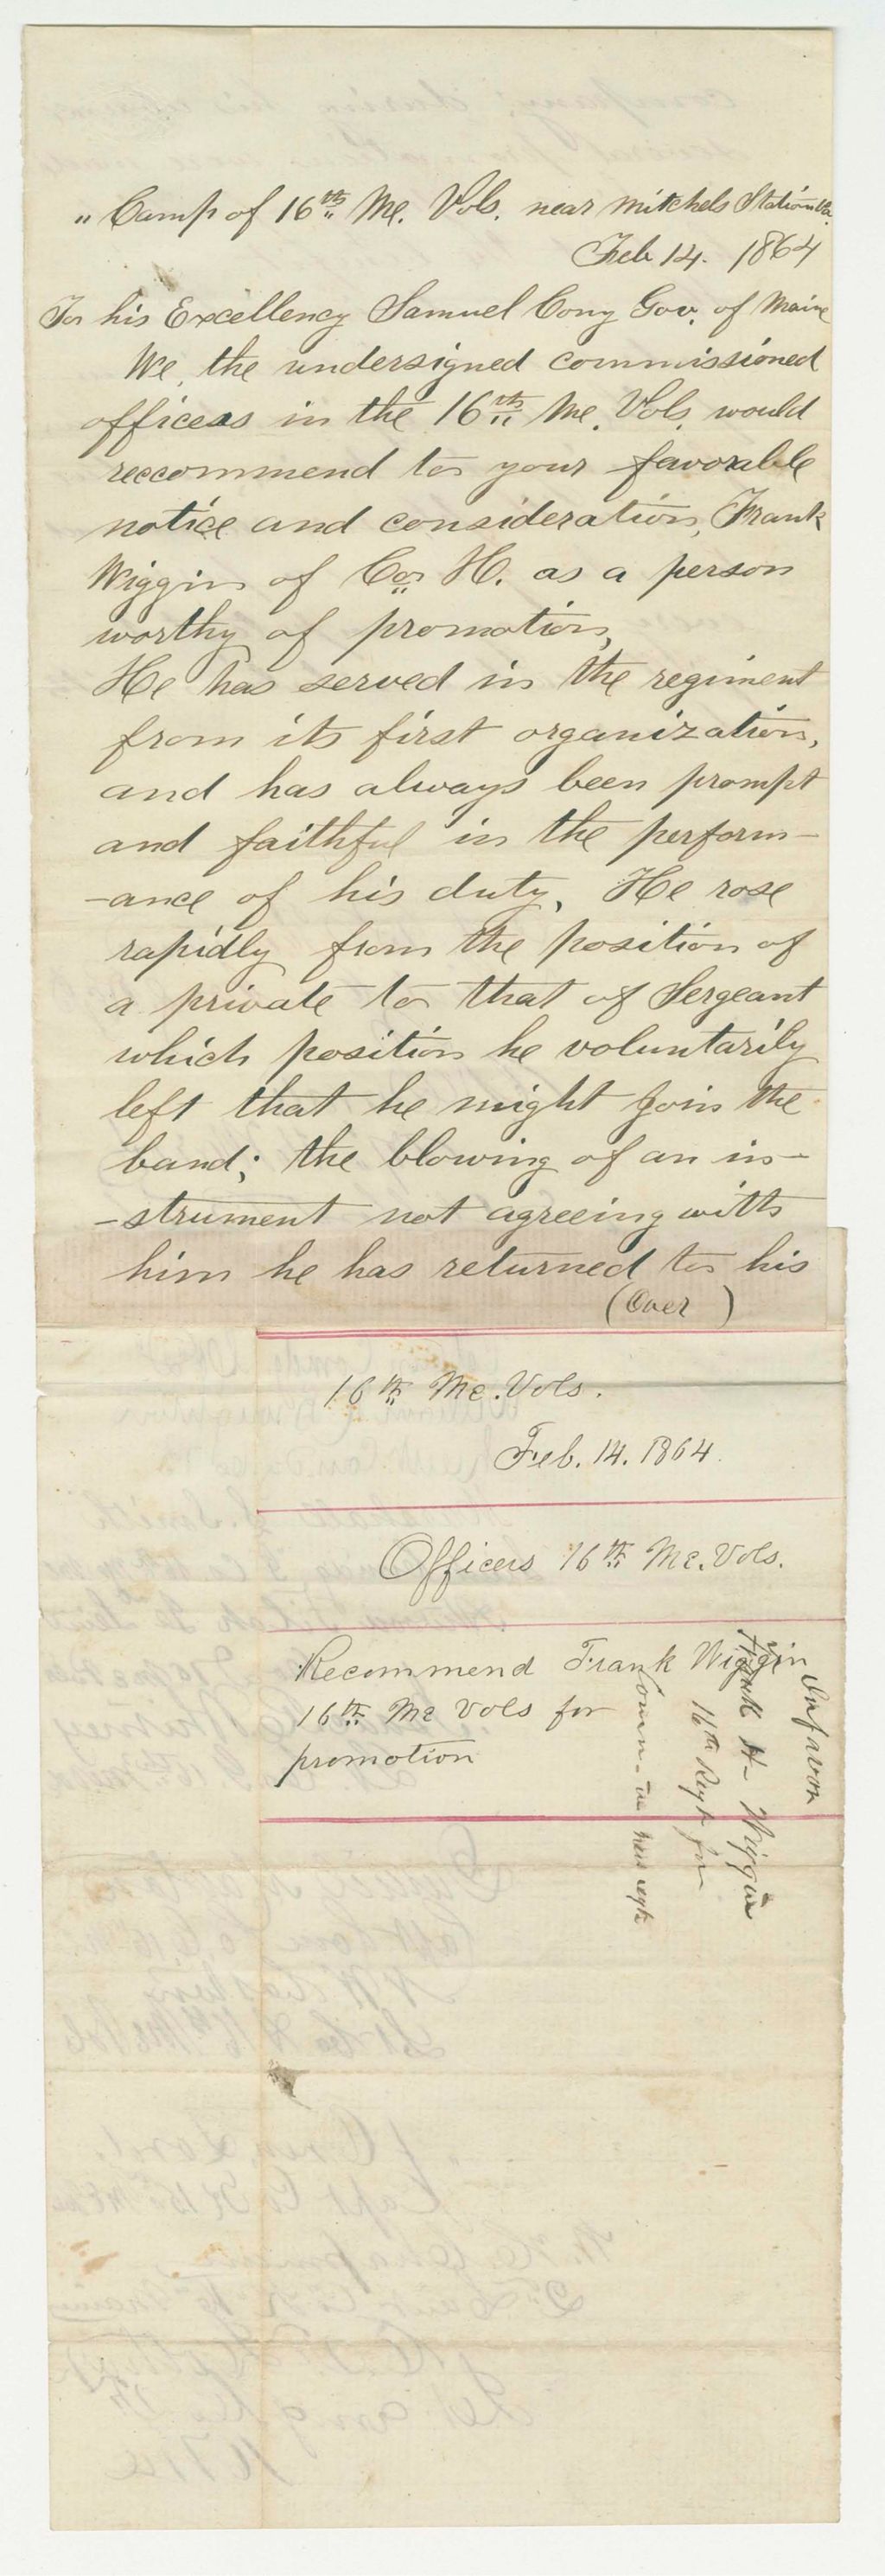 " Camp of 16th Me. Vols. near Mitchels Station Va.
Feb 14. 1864
To his Excellency Samuel Cony Gov. of Maine
We, the undersigned commissioned
officers in the 16th Me. Vols. would
reccommend to your favorable
notice and consideration, Frank
Wiggin of Co. H. as a person
worthy of promotion,
He has served in the regiment
from its first organization,
and has always been prompt
and faithful in the perform-
-ance of his duty, He rose
rapidly from the position of
a private to that of Sergeant
which position he voluntarily
left that he might join the
band; the blowing of an in-
-strument not agreeing with
him he has returned to his
(Over)
16th Me. Vols.
Feb. 14. 1864.
Officers 16th Me. Vols.
Recommend Frank Wiggin
16th Me Vols for
promotion
In favor
Frank H Wiggin
16th Regt for
Comn. in new regt